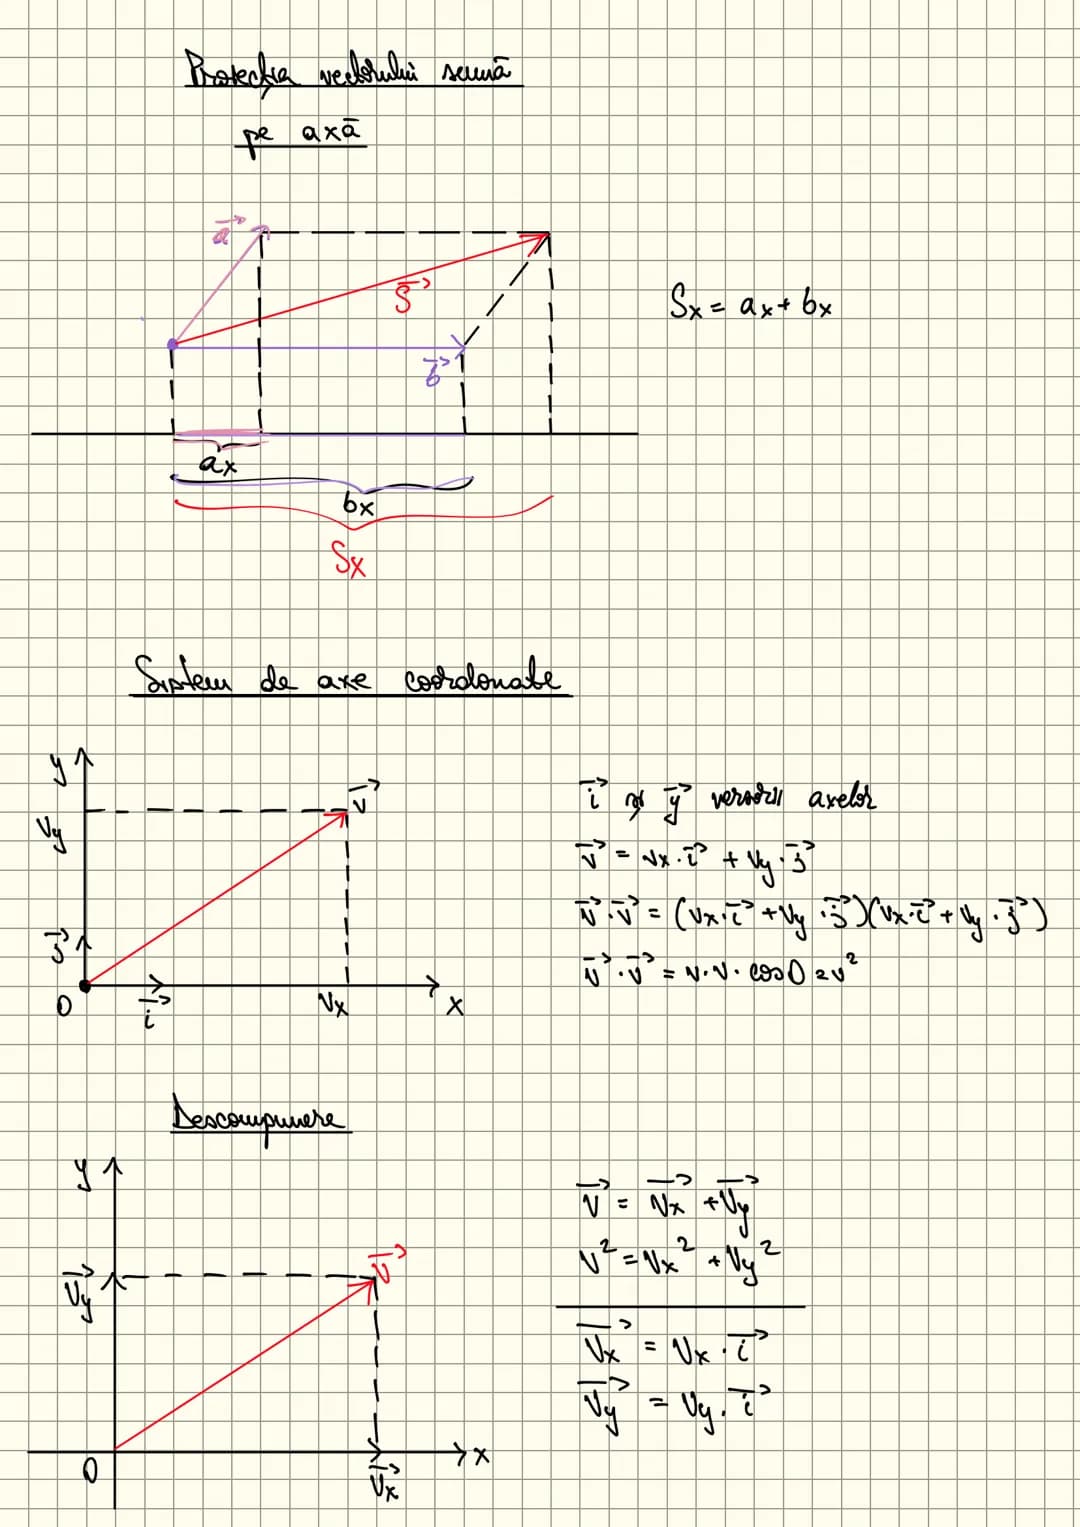 Proiecția vectorului sumă
pe axă
a⃗
S⃗
b⃗
Sx = ax + bx
ax
bx
Sx
Sistem de axe coordonate
y
v⃗
Vy
j⃗
O
i⃗
Vx
x
i⃗ și y⃗ versorii axelor
v⃗ = vx·i⃗ + vy·j⃗
v⃗·v⃗ = (vx·i⃗ + vy·j⃗)(vx·i⃗ + vy·j⃗)
v⃗·v⃗ = v·v·cos0 = v²
Descompunere
y
V⃗
V⃗y
O
V⃗x
x
V⃗ = V⃗x + V⃗y
V² = Vx² + Vy²
V⃗x = Vx·i⃗
V⃗y = Vy·i⃗